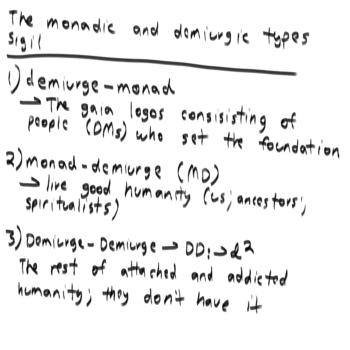 The monadic and demiurgic types
sigil
1) demiurge-monad
→ The gaia logos consisisting of
people (DMs) who set the foundation
2) monad-demiurge (MD)
→ live good humanity (us; ancestors;
spiritualists)
3) Demiurge-Demiurge → DD; → d²
The rest of attached and addicted
humanity; they don't have it